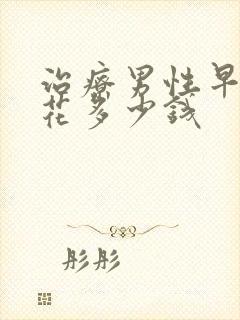 治療男性早
花多少錢
彤彤